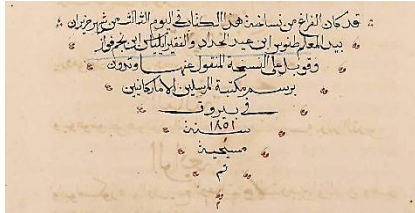 قد كان الفراغ من نساخة هذا الكتاب في اليوم الثالث من شهر حزيران
بيد المعلم طنوس ابن عيد الحداد والفقير الياس ابن فواز
وقوبل على النسخة المنقول عنها في بيروت
برسم مكتبة المرسلين الاماركانيين
في بيروت
سنة ١٨٥١
مسيحية
تم
م